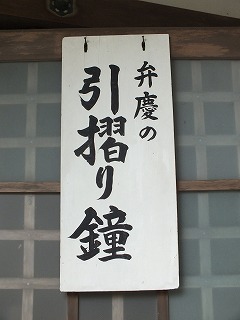 弁慶の
引摺り鐘